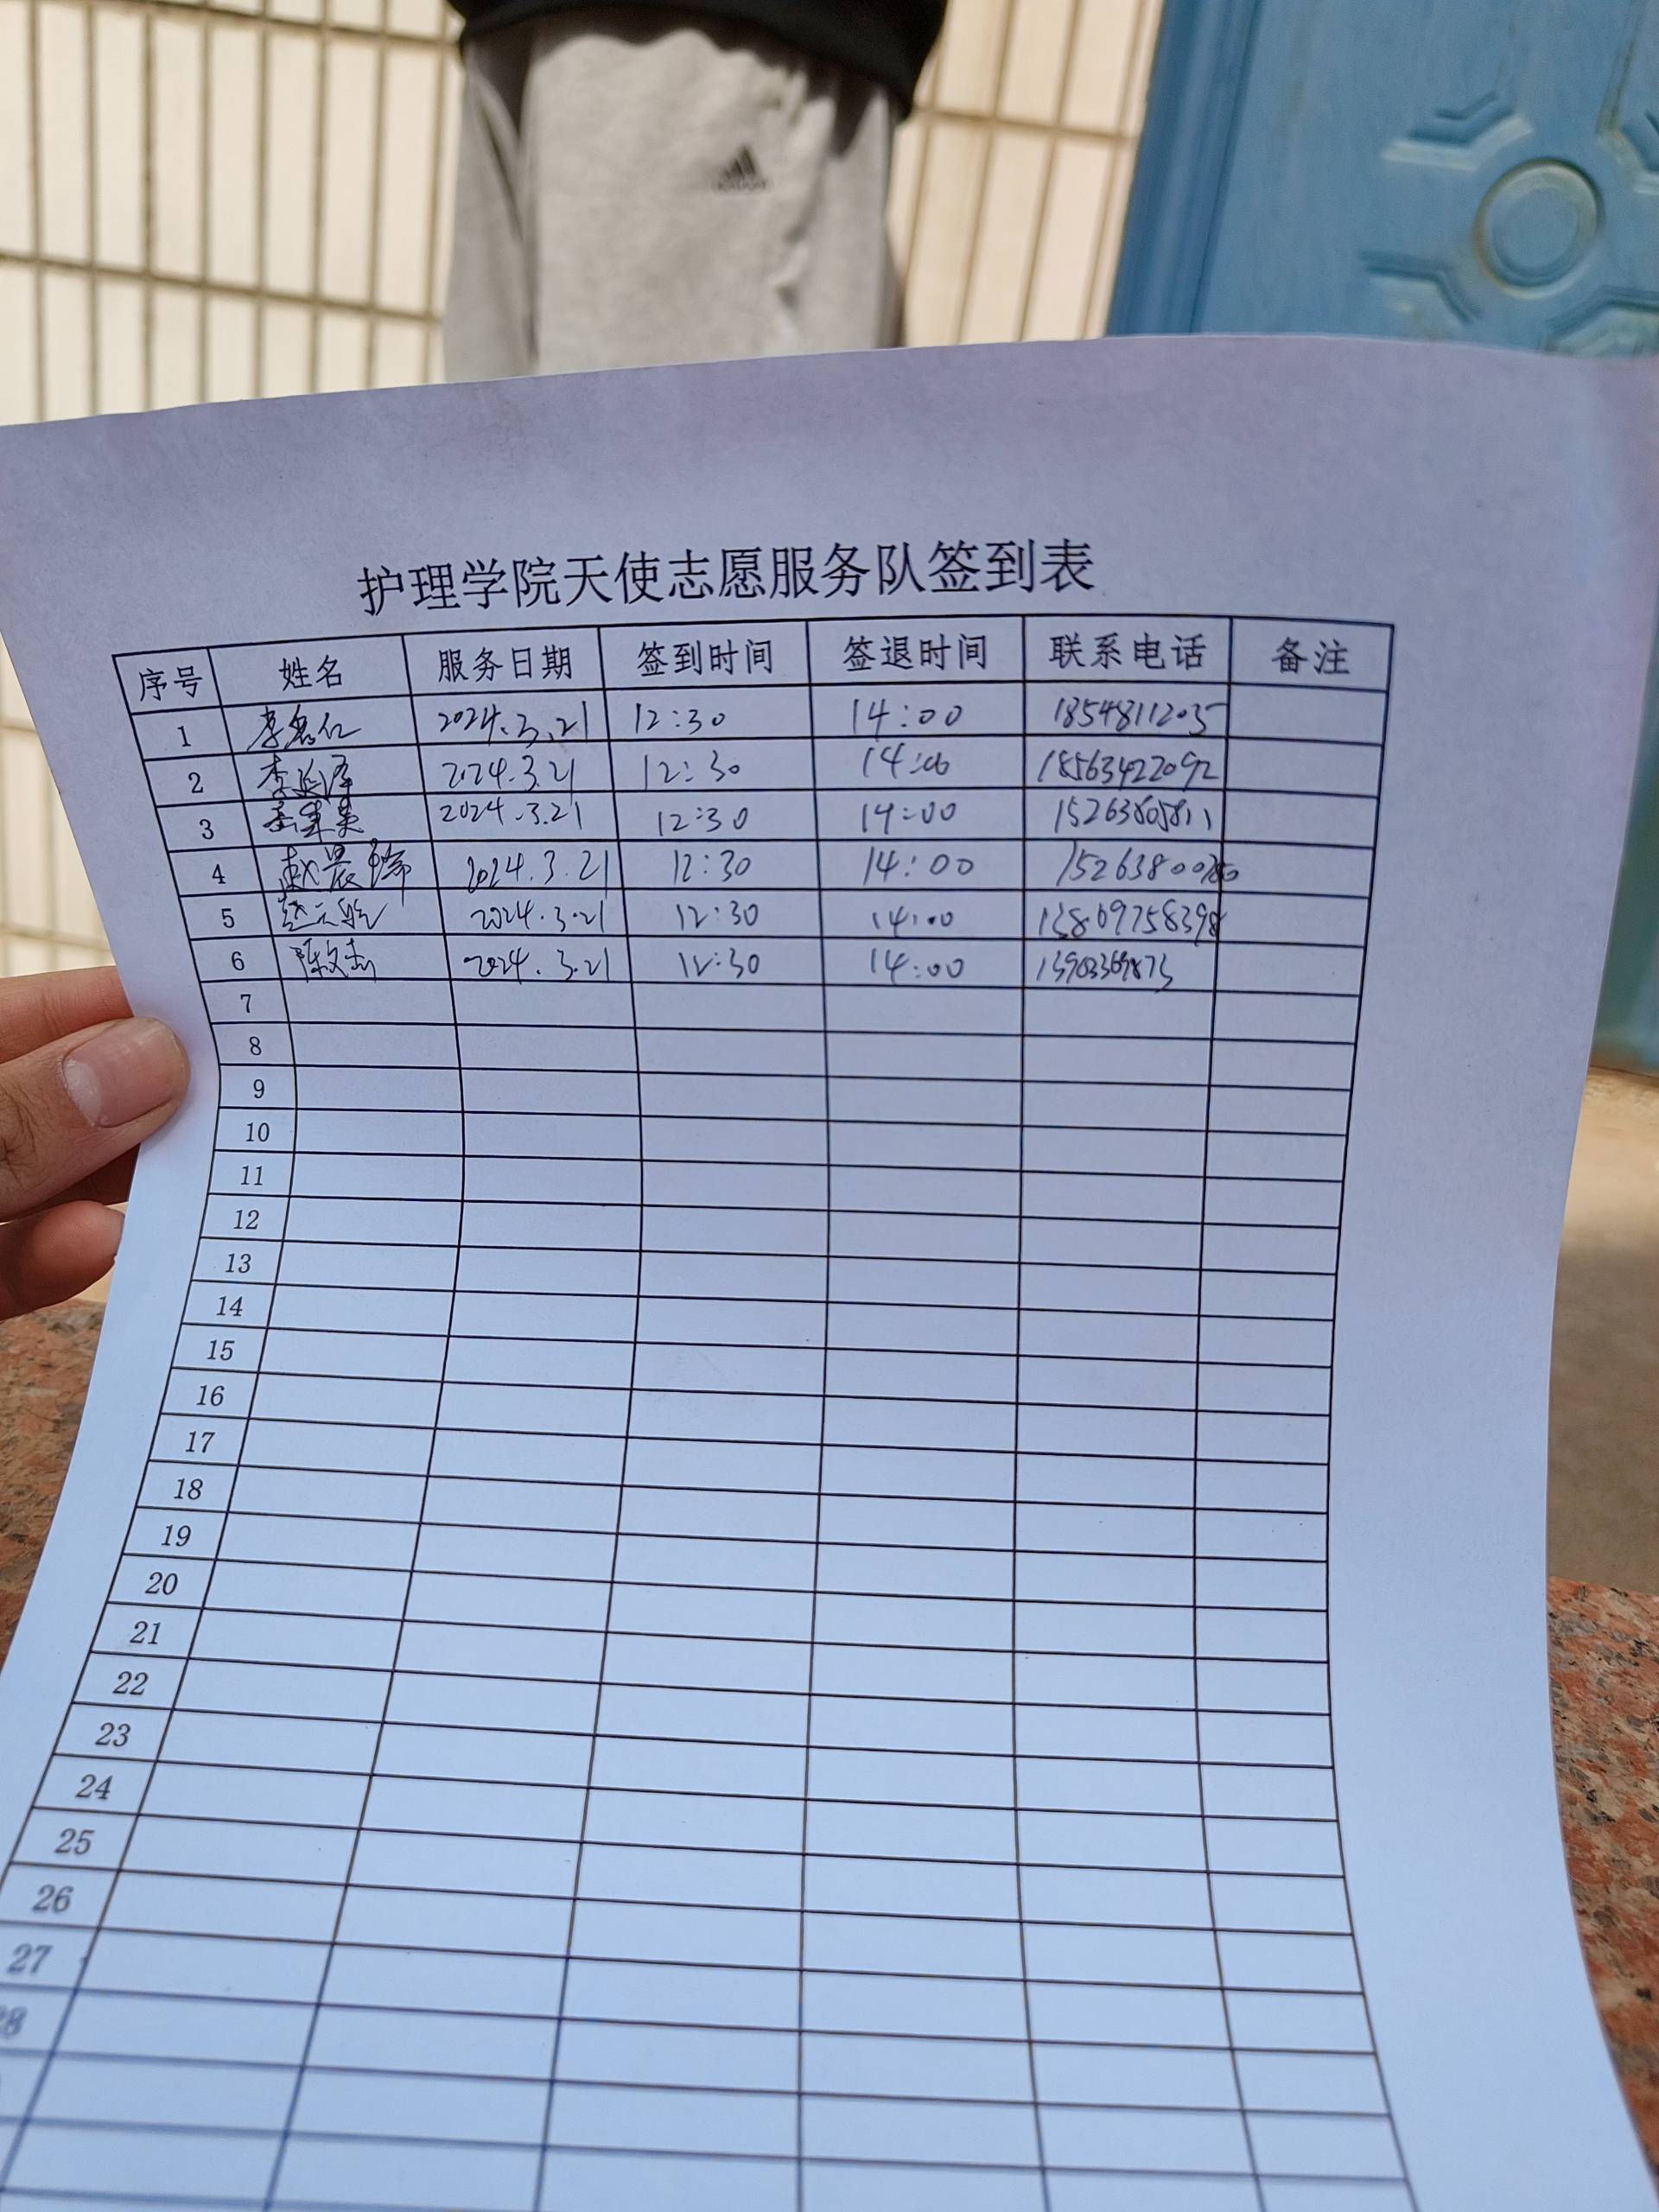 护理学院天使志愿服务队签到表
序号 姓名 服务日期 签到时间 签退时间 联系电话 备注
1 2024.3.21 12:30 14:00 18548112035
2 李延泽 2024.3.21 12:30 14:00 18563422092
3 2024.3.21 12:30 14:00 15263805811
4 赵晨 2024.3.21 12:30 14:00
5 2024.3.21 12:30 14:00
6 陈文杰 2024.3.21 12:30 14:00
7
8
9
10
11
12
13
14
15
16
17
18
19
20
21
22
23
24
25
26
27
28